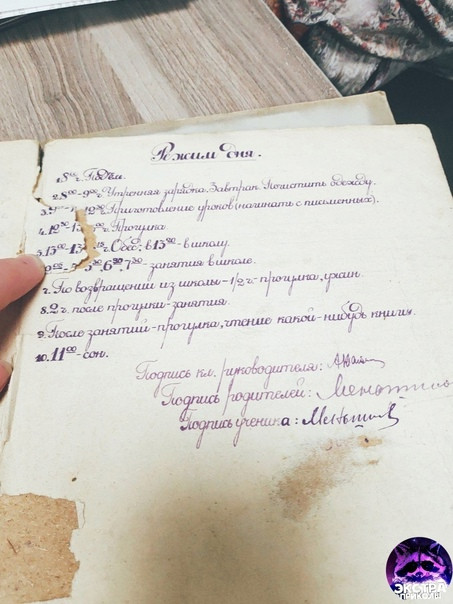 Режим дня.
1. 8⁰⁰ ч. Подъём.
2. 8⁰⁰-9⁰⁰ ч. Утренняя зарядка. Завтрак. Почистить одежду.
3. 12³⁰ Приготовление уроков (начинать с письменных).
4. 12³⁰ Прогулка
5. 13⁰⁰ ч. Обед; в 13³⁰ - в школу.
6³⁰, 7³⁰ - занятия в школе.
7. По возвращении из школы - 1/2 ч - прогулка, ужин.
8. 2 ч. после прогулки - занятия.
9. После занятий - прогулка, чтение какой-нибудь книги.
10. 11⁰⁰ - сон.
Подпись кл. руководителя:
Подпись родителей:
Подпись ученика:
ЭКСТРА
ПРИКОЛЫ